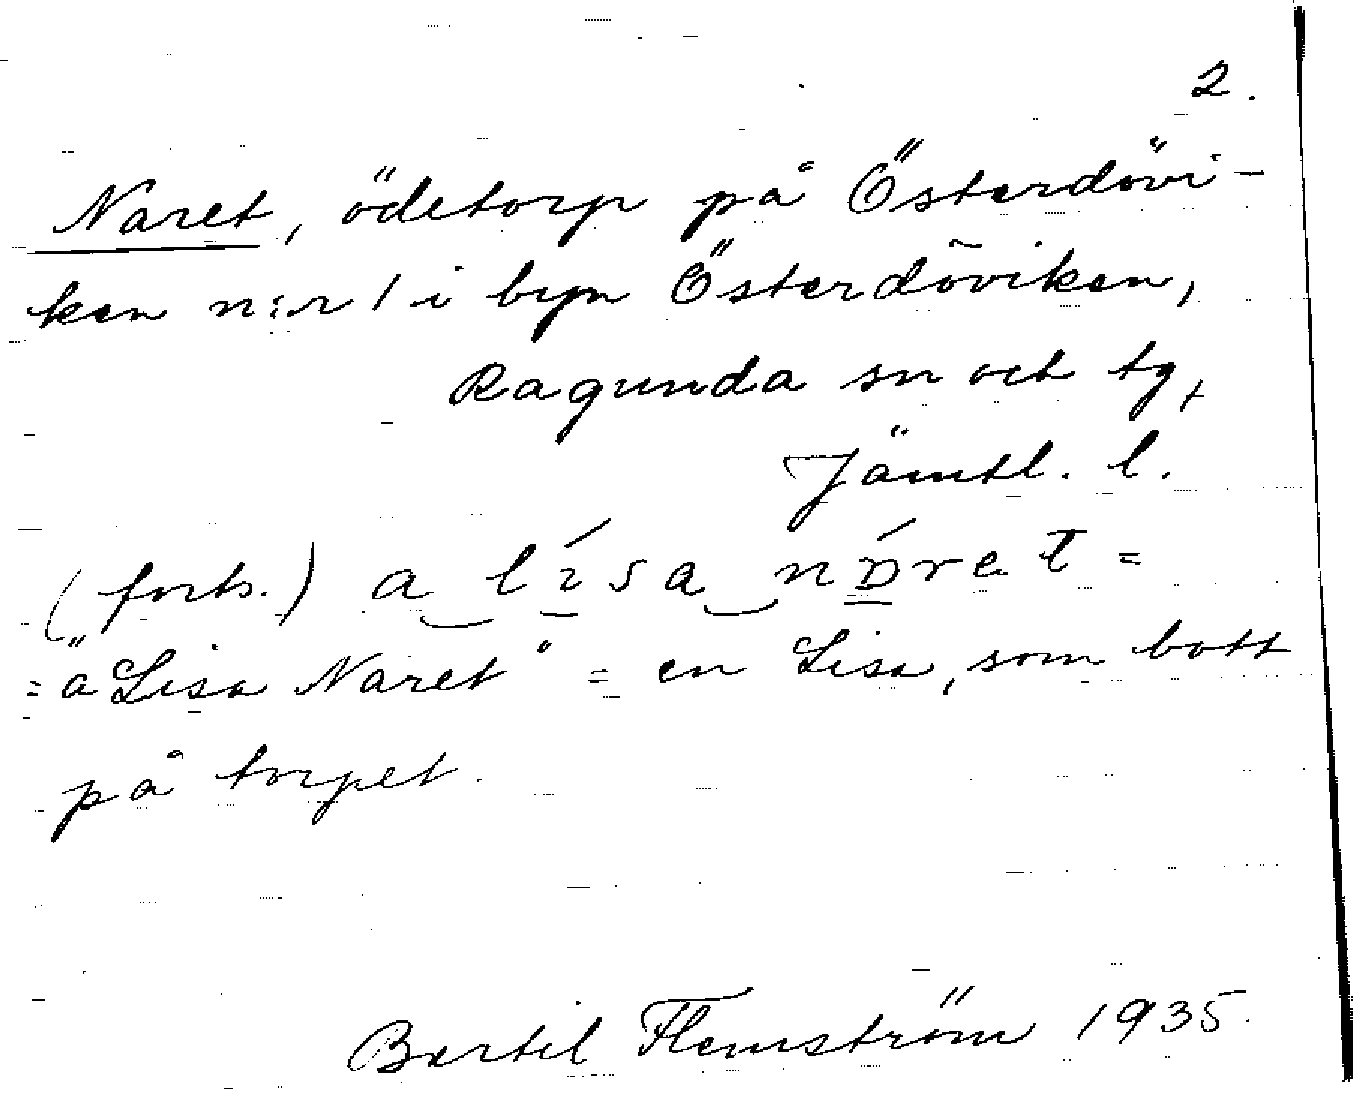 2.
Naret, ödetorp på Österdövi-
ken n:r 1 i byn Österdöviken,
Ragunda sn och tg,
Jämtl. l.
(forts.) a lísa nɒ́ret =
= "a Lisa Naret" = en Lisa, som bott
på torpet.
Bertil Flemström 1935.